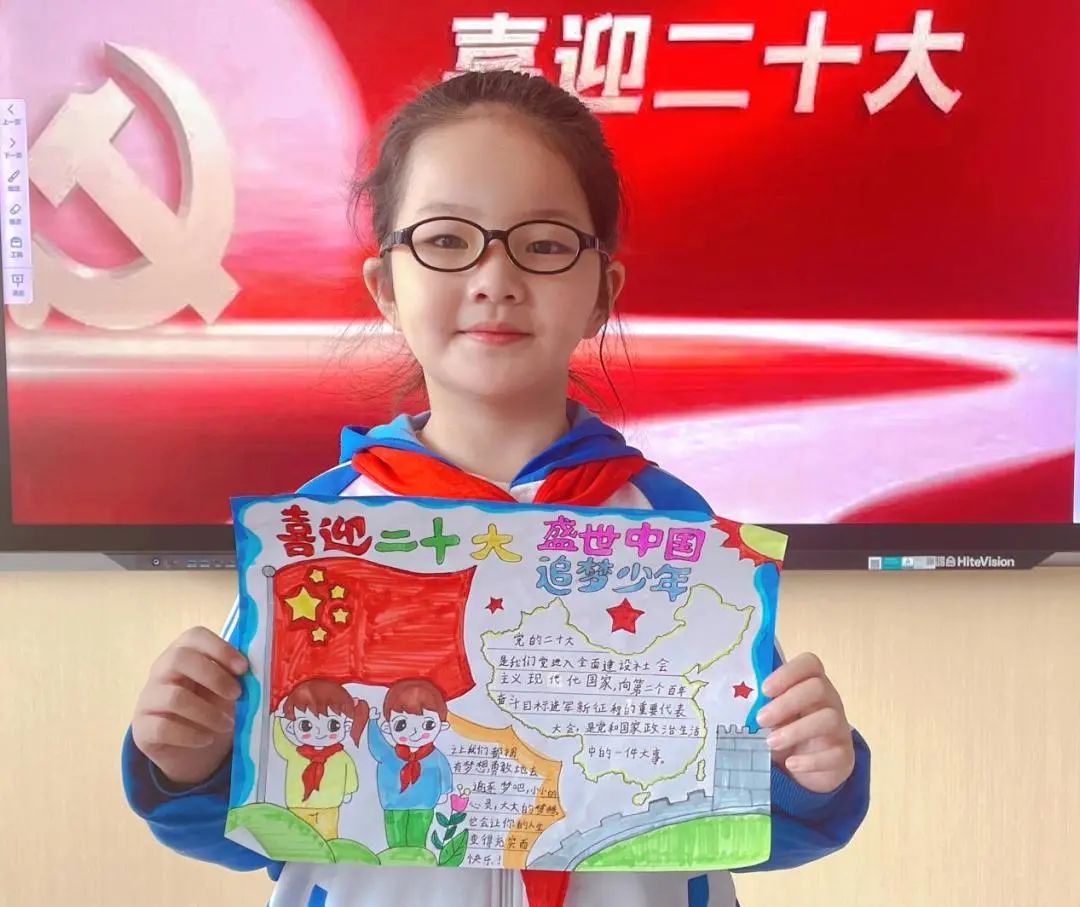 喜迎二十大
上一页
下一页
工具
HiteVision
喜迎二十大 盛世中国
追梦少年
党的二十大
是我们党进入全面建设社会
主义现代化国家,向第二个百年
奋斗目标进军新征程的重要代表
大会,是党和国家政治生活
中的一件大事。
让我们都用
有梦想勇敢地去
追逐梦吧,小小的
心灵,大大的梦想
也会让你的人生
变得充实而
快乐!